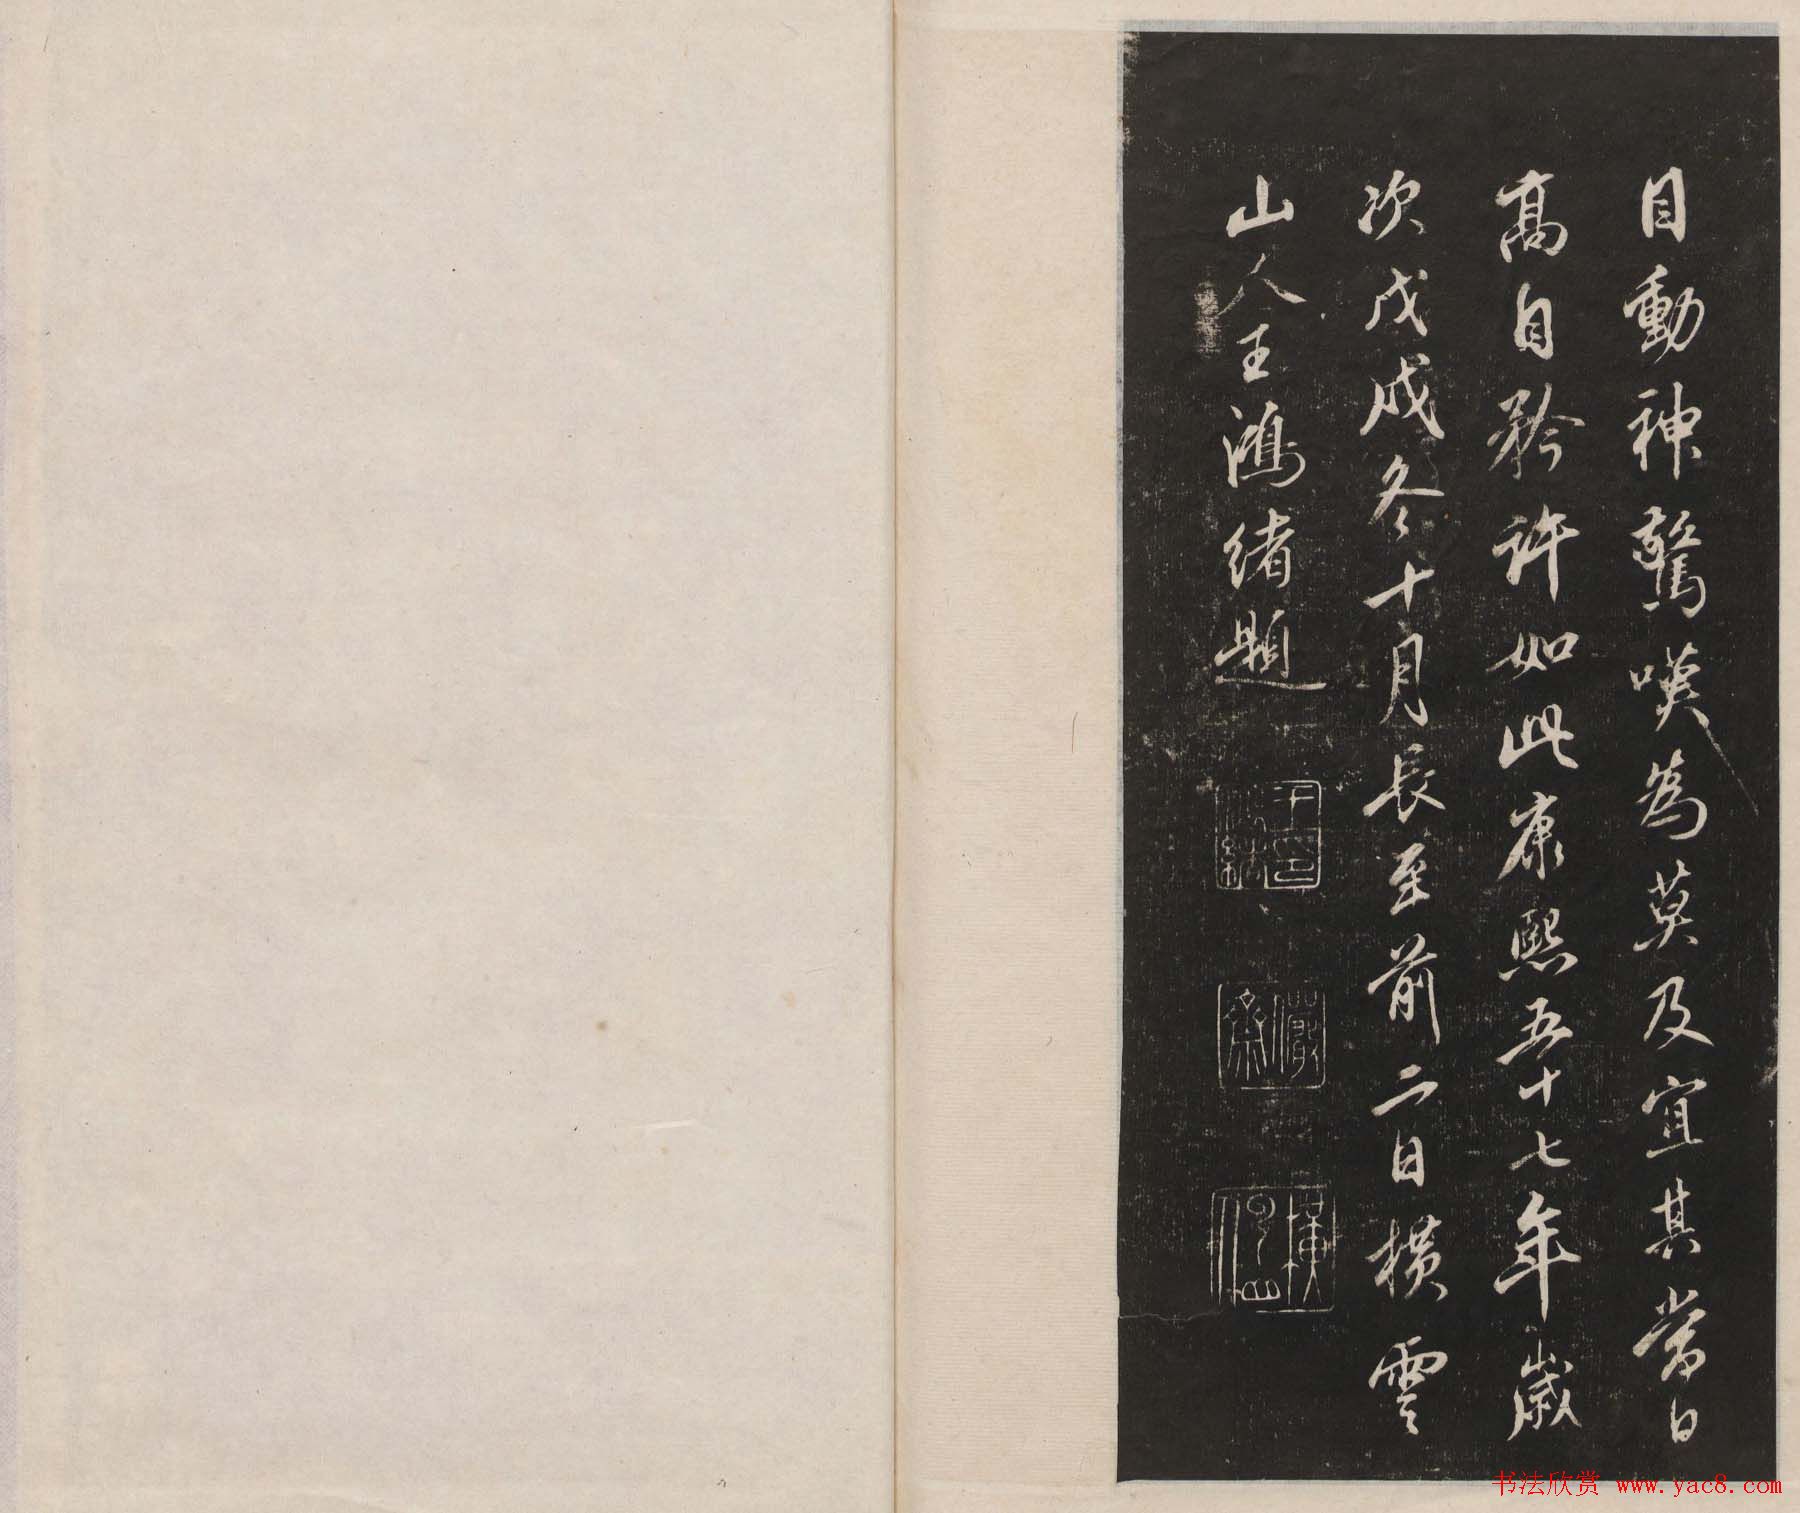 目動神驚嘆為莫及宜其當日
高自矜許如此康熙五十七年歲
次戊戌冬十月長至前二日橫雲
山人王鴻緒題
王印鴻緒
儼齋
橫雲山人
书法欣赏 www.yac8.com